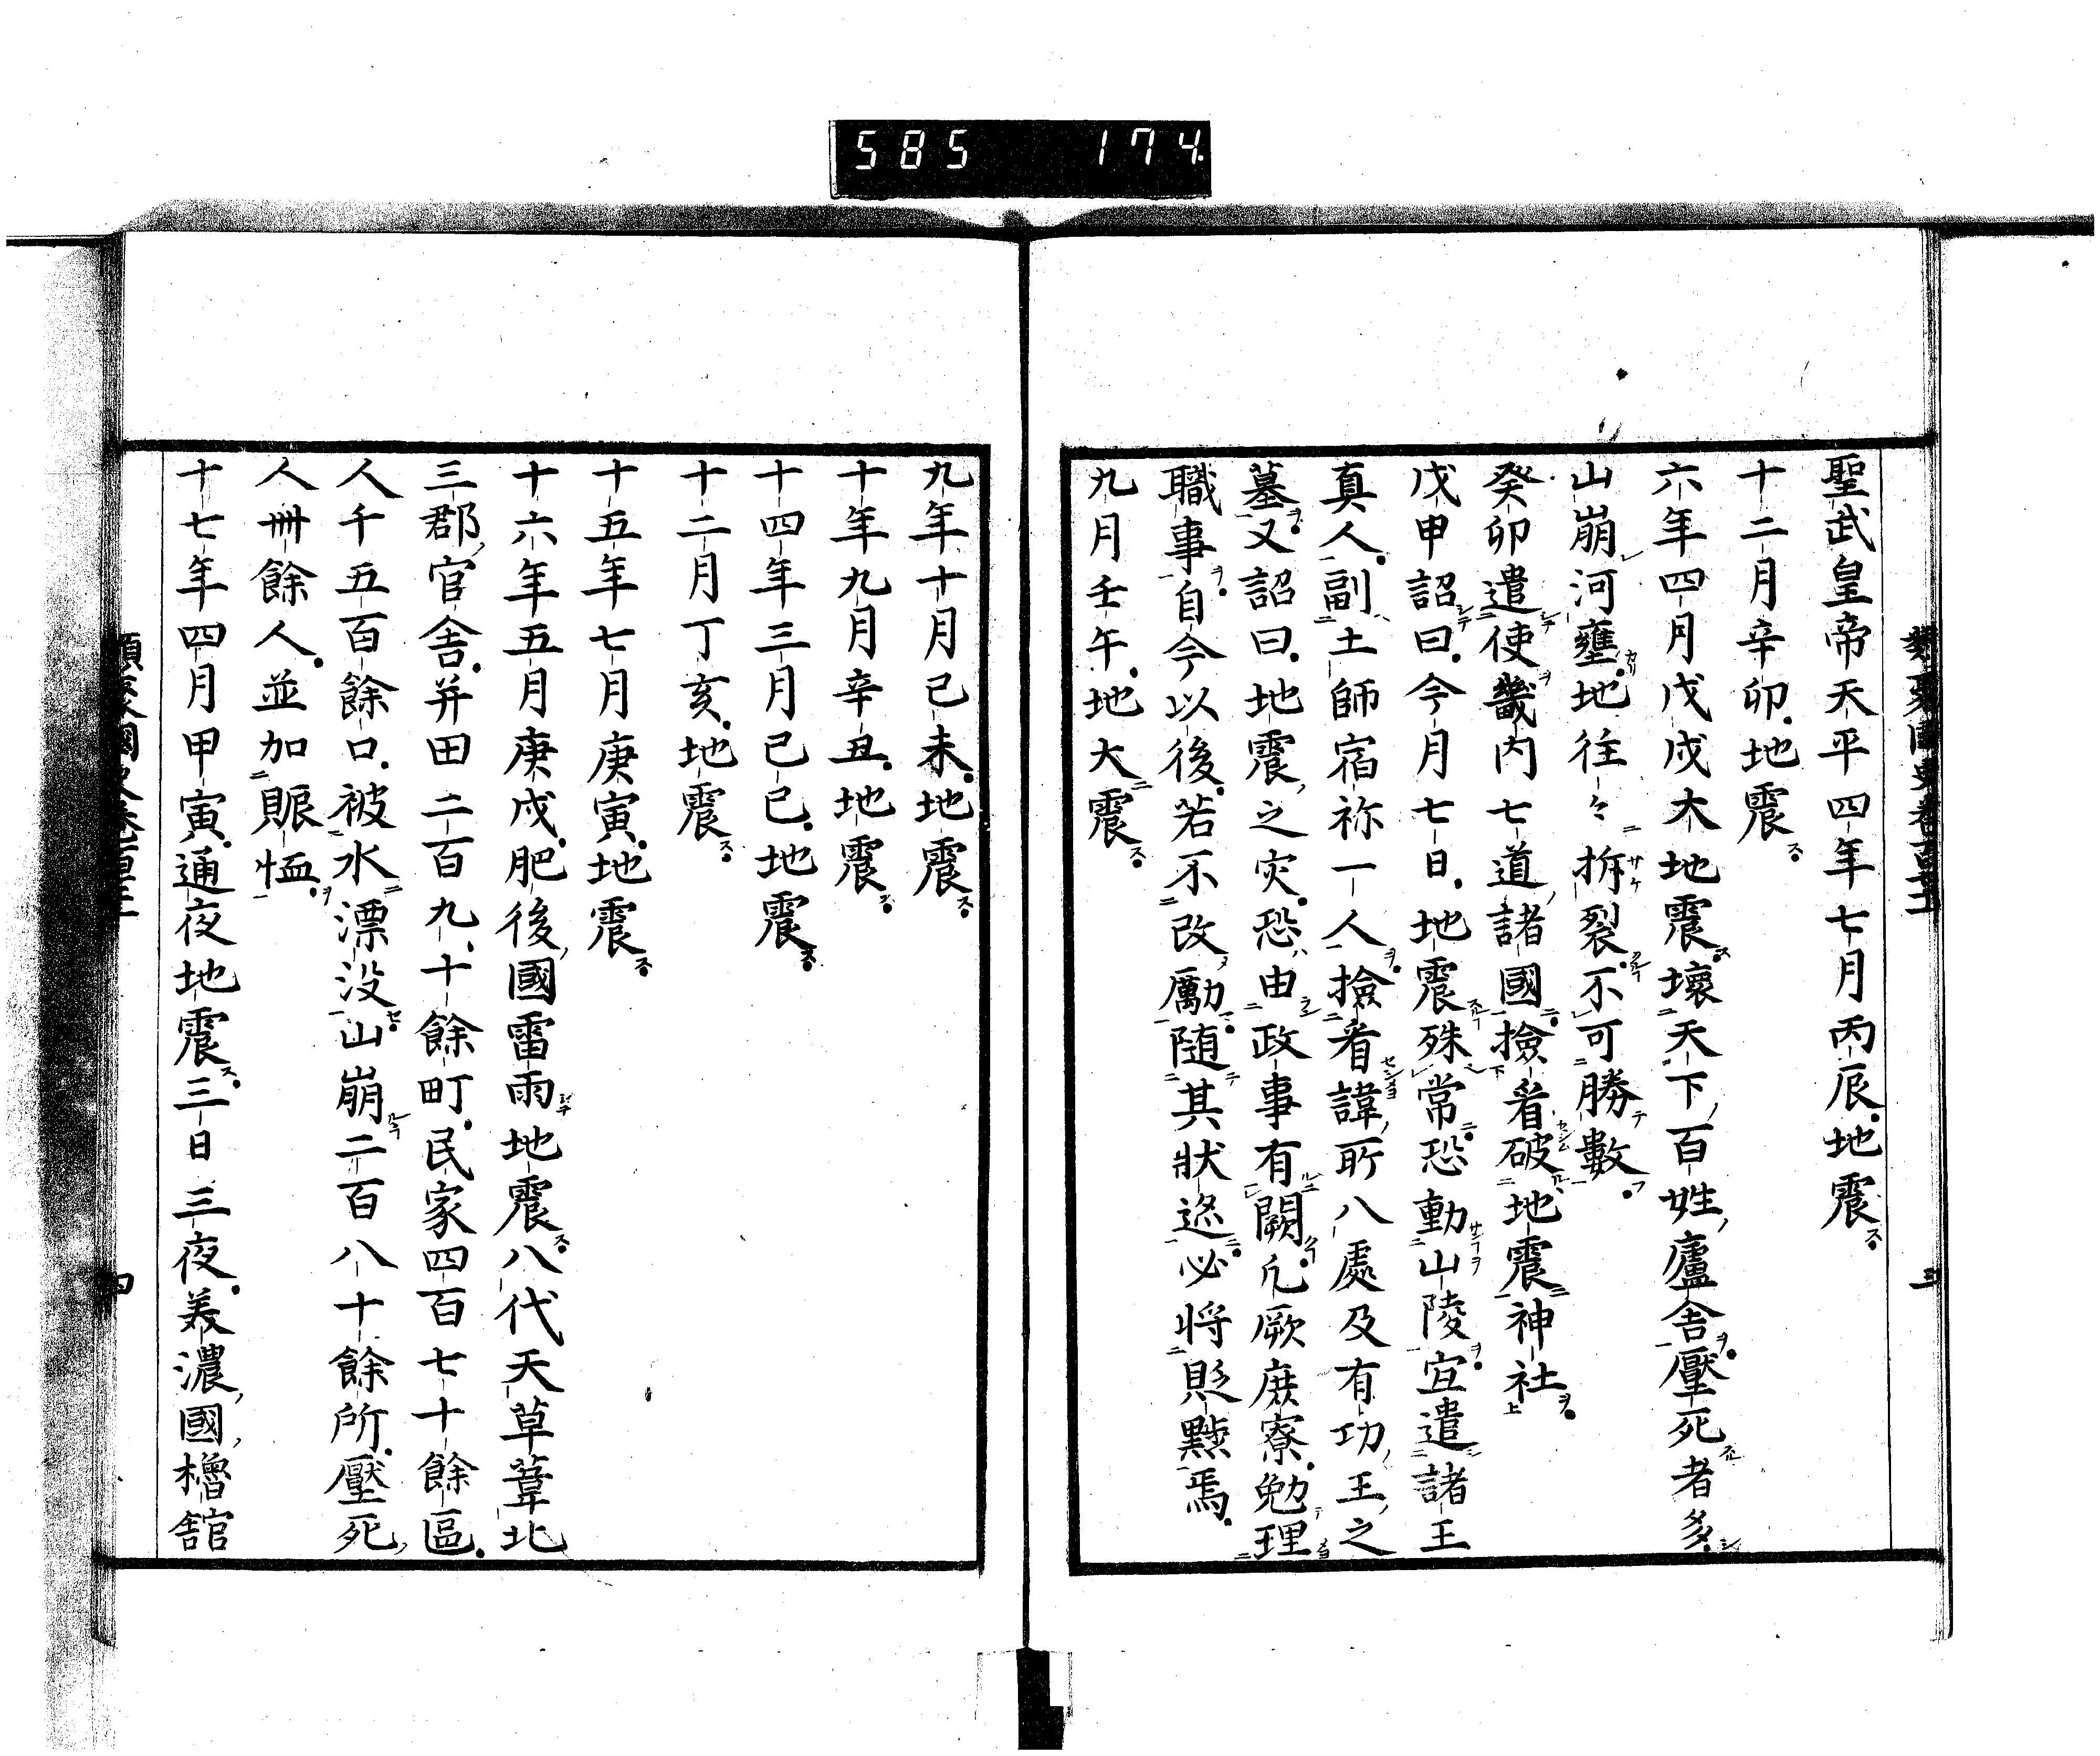 585 174
聖武皇帝天平四年七月丙辰地震
十二月辛卯地震
六年四月戊戌大地震壞天下百姓廬舎壓死者多
山崩河壅地往々拆裂不可勝數
癸卯遣使畿内七道諸國撿看破地震神社
戊申詔曰今月七日地震殊常恐動山陵宜遣諸王
真人副土師宿祢一人撿看諱所八處及有功王之
墓又詔曰地震之灾恐由政事有闕凢厥庶寮勉理
職事自今以後若不改勵随其狀迩必将貶黜焉
九月壬午地大震
九年十月己未地震
十年九月辛丑地震
十四年三月己巳地震
十二月丁亥地震
十五年七月庚寅地震
十六年五月庚戌肥後國雷雨地震八代天草葦北
三郡官舎并田二百九十餘町民家四百七十餘區
人千五百餘口被水漂没山崩二百八十餘所壓死
人卌餘人並加賑恤
十七年四月甲寅通夜地震三日三夜美濃國櫓舘
類聚國史卷百七十一
四